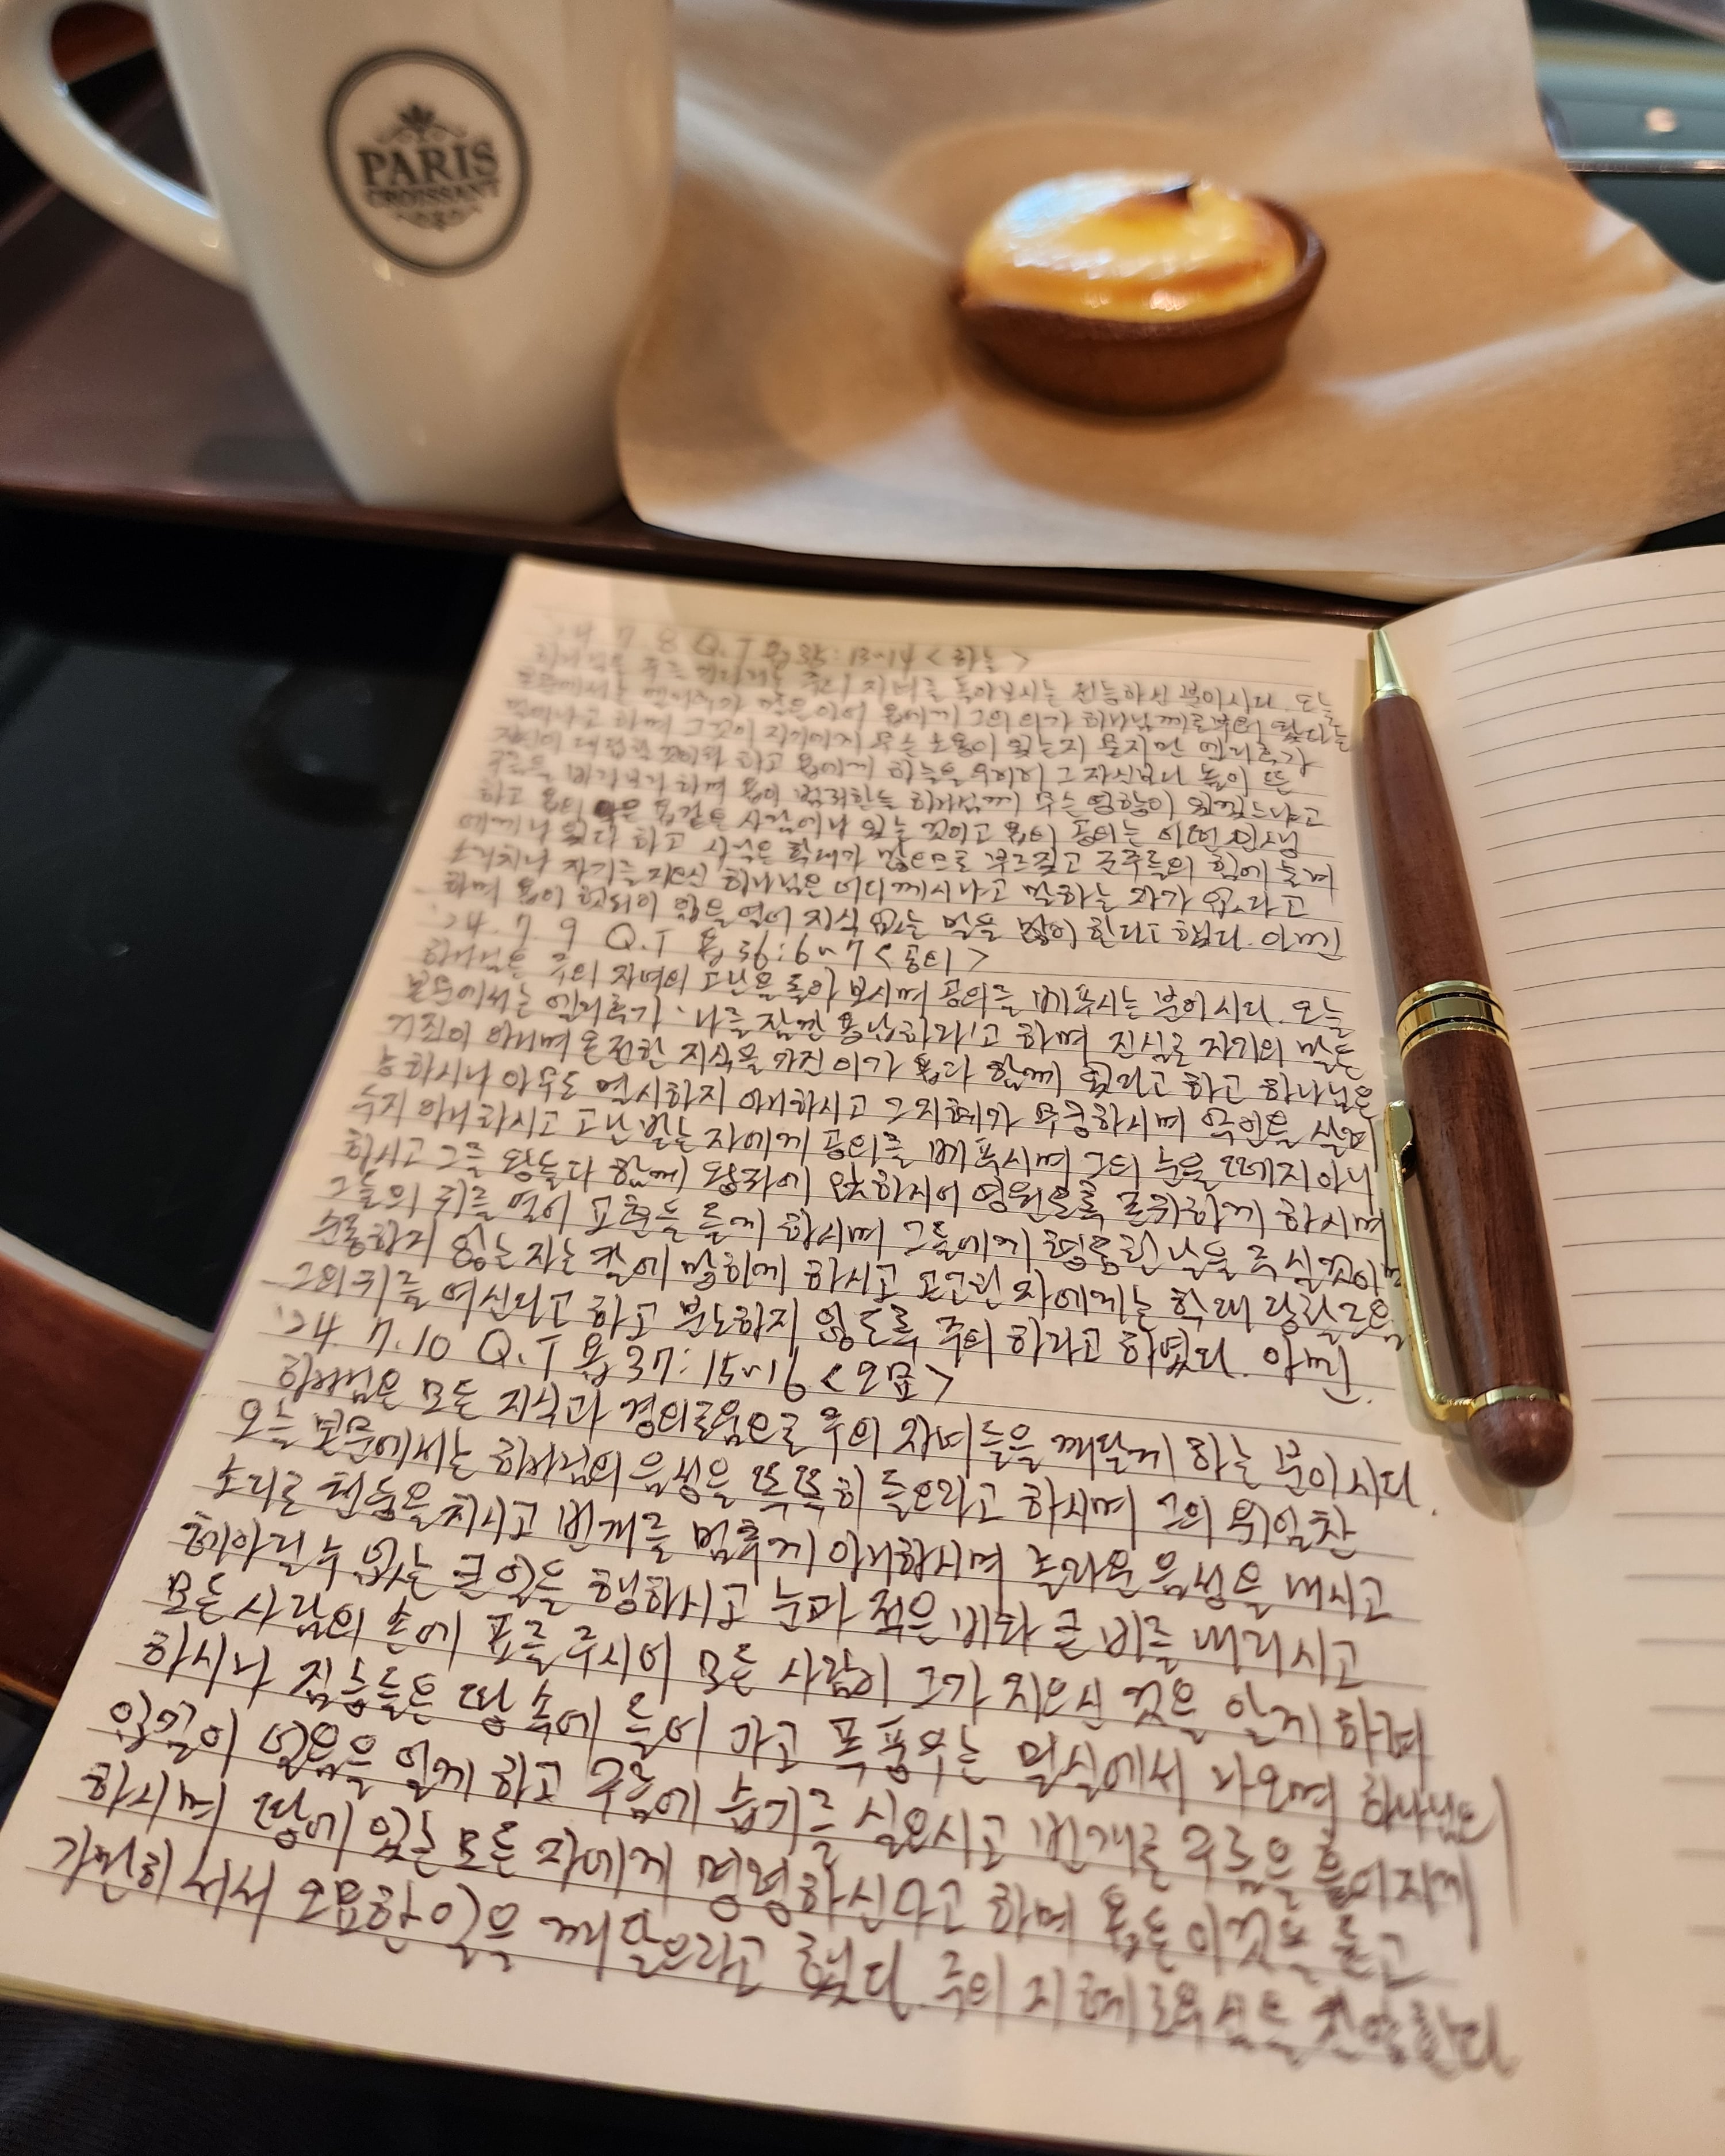 PARIS
CROISSANT
'24 7 8 Q.T 욥 35:13~14 <하늘>
자녀를 돌아보시는 전능하신 분이시다. 오늘
본문에서는 엘리후가 말을 이어 욥에게 그의 의가 하나님께로부터
하며 그것이 자기에게 무슨 소용이 있는지 묻지만 엘리후가
대답할 것이라 하고 욥에게 하늘을 우러러 그 자신보다 높이 뜬
구름을 바라보라 하며 욥이 범죄한들 하나님께 무슨 영향이 있겠느냐고
하고 욥의 악은 욥같은 사람에나 있는 것이고 욥의 공의는 어떤 인생
에게나 있다 하고 사람은 학대가 많으므로 부르짖고 군주들의 힘에 눌려
소리치나 자기를 지으신 하나님은 어디 계시냐고 말하는 자가 없다고
하며 욥이 헛되이 입을 열어 지식 없는 말을 많이 한다고 했다. 아멘
'24. 7 9 Q.T 욥 36:6~7 <공의>
하나님은 주의 자녀의 고난을 돌아 보시며 공의를 베푸시는 분이시다. 오늘
본문에서는 엘리후가 '나를 잠깐 용납하라'고 하며 진실로 자기의 말은
거짓이 아니며 온전한 지식을 가진 이가 욥과 함께 있다고 하고 하나님은
능하시나 아무도 멸시하지 아니하시고 그 지혜가 무궁하시며 악인을 살려
두지 아니하시고 고난 받는 자에게 공의를 베푸시며 그의 눈을 떼지 아니
하시고 그를 왕들과 함께 왕좌에 앉히시어 영원토록 존귀하게 하시며
그들의 귀를 열어 교훈을 듣게 하시며 그들에게 형통한 날을 주실 것이며
순종하지 않는 자는 칼에 망하게 하시고 곤고한 자에게는 학대 당할 즈음
그의 귀를 여신다고 하고 분노하지 않도록 주의 하라고 하였다. 아멘.
'24. 7. 10 Q.T 욥 37:15~16 <오묘>
하나님은 모든 지식과 경이로움으로 주의 자녀들을 깨닫게 하는 분이시다.
오늘 본문에서는 하나님의 음성을 똑똑히 들으라고 하시며 그의 위엄찬
소리로 천둥을 치시고 번개를 멈추게 아니하시며 놀라운 음성을 내시고
헤아릴 수 없는 큰 일을 행하시고 눈과 적은 비와 큰 비를 내리시고
모든 사람의 손에 표를 주시어 모든 사람이 그가 지으신 것을 알게 하려
하시나 짐승들은 땅 속에 들어 가고 폭풍우는 밀실에서 나오며 하나님의
입김이 얼음을 얼게 하고 구름에 습기를 실으시고 번개로 구름을 흩어지게
하시며 땅에 있는 모든 자에게 명령하신다고 하며 욥은 이것을 듣고
가만히 서서 오묘한 일을 깨달으라고 했다. 주의 지혜로우심을 찬양한다